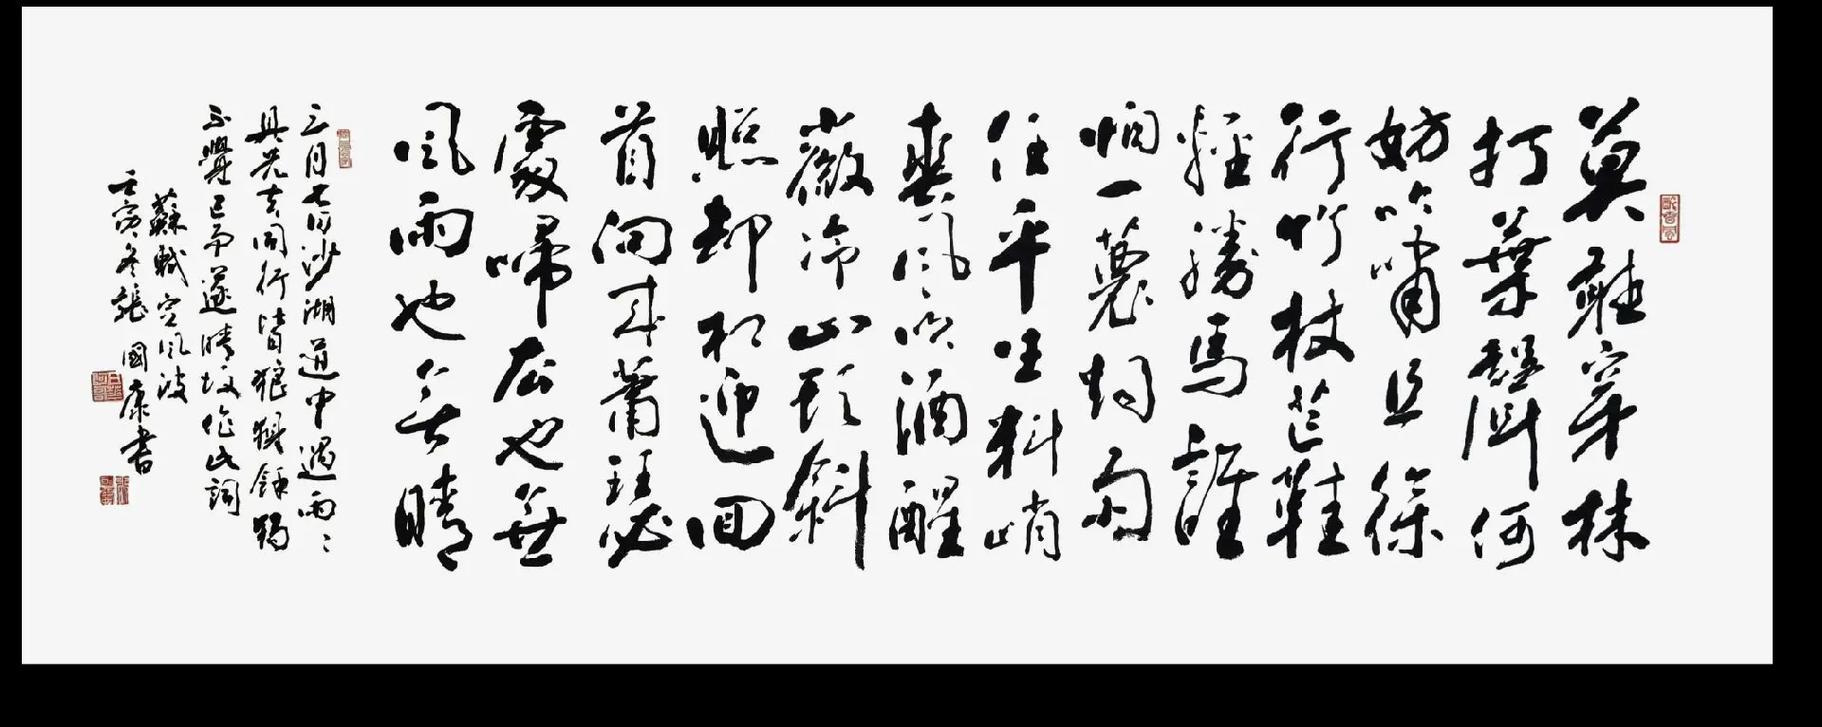 莫聽穿林
打葉聲何
妨吟嘯且徐
行竹杖芒鞋
輕勝馬誰
怕一蓑烟雨
任平生料峭
春風吹酒醒
微冷山頭斜
照却相迎回
首向来蕭瑟
處歸去也無
風雨也無晴
三月七日沙湖道中遇雨〻
具先去同行皆狼狽餘獨
不覺已而遂晴故作此詞
蘇軾定風波
壬寅冬張國康書